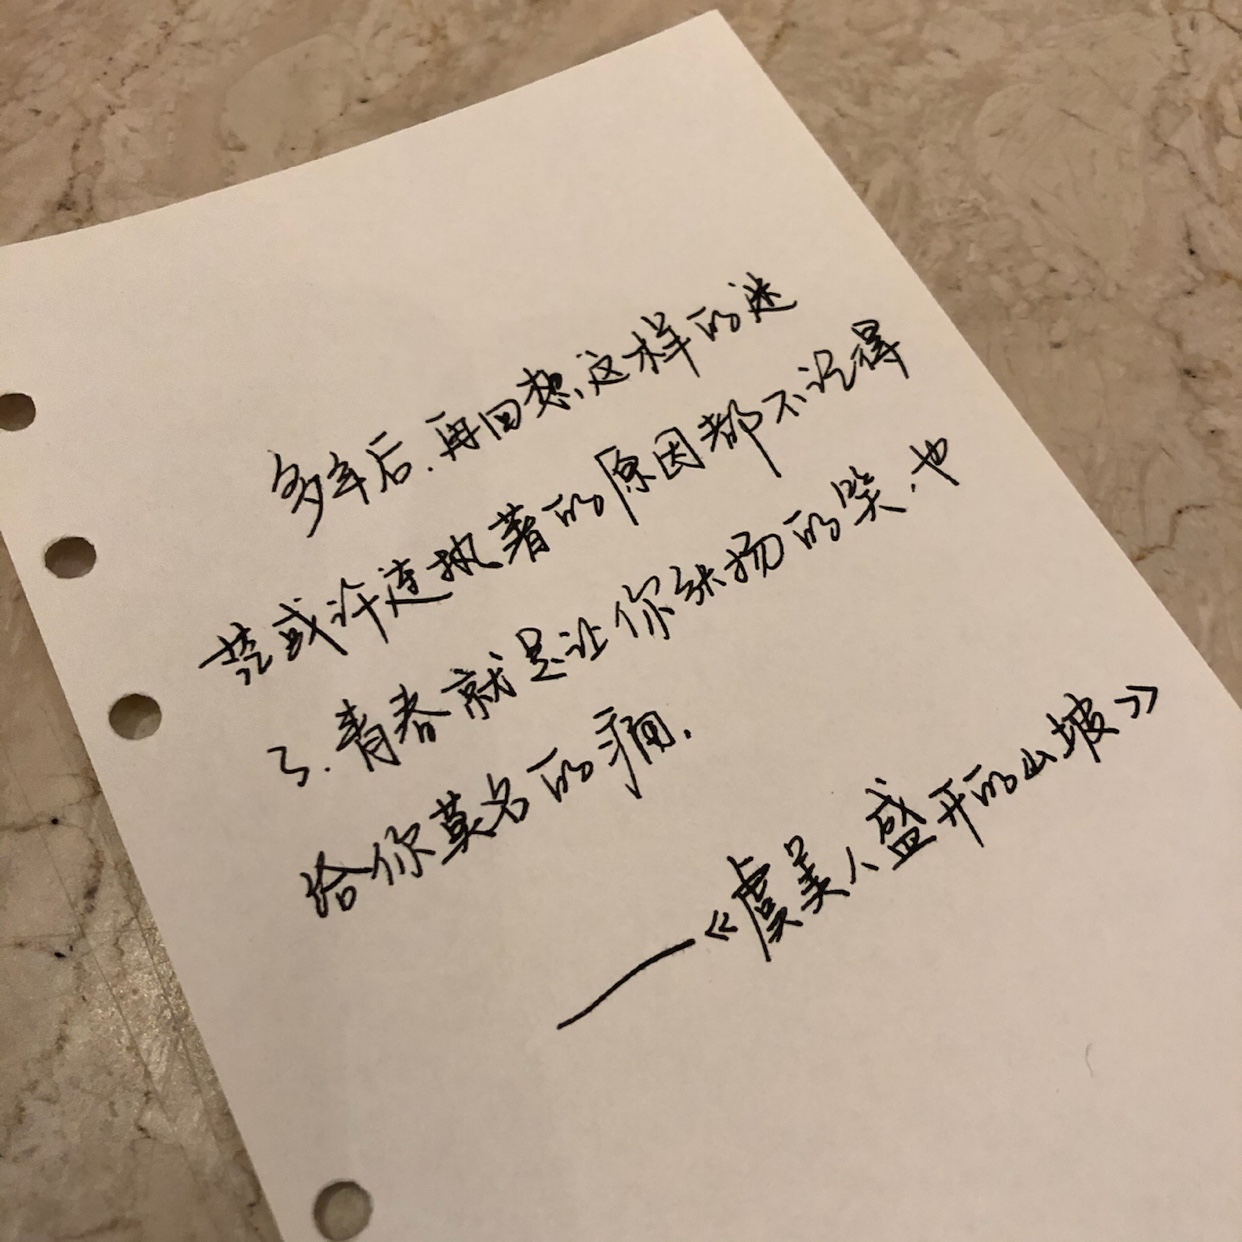 多年后，再回想，这样的迷
茫或许连执著的原因都不记得
了。青春就是让你张扬的笑，也
给你莫名的痛。
——《虞美人盛开的山坡》